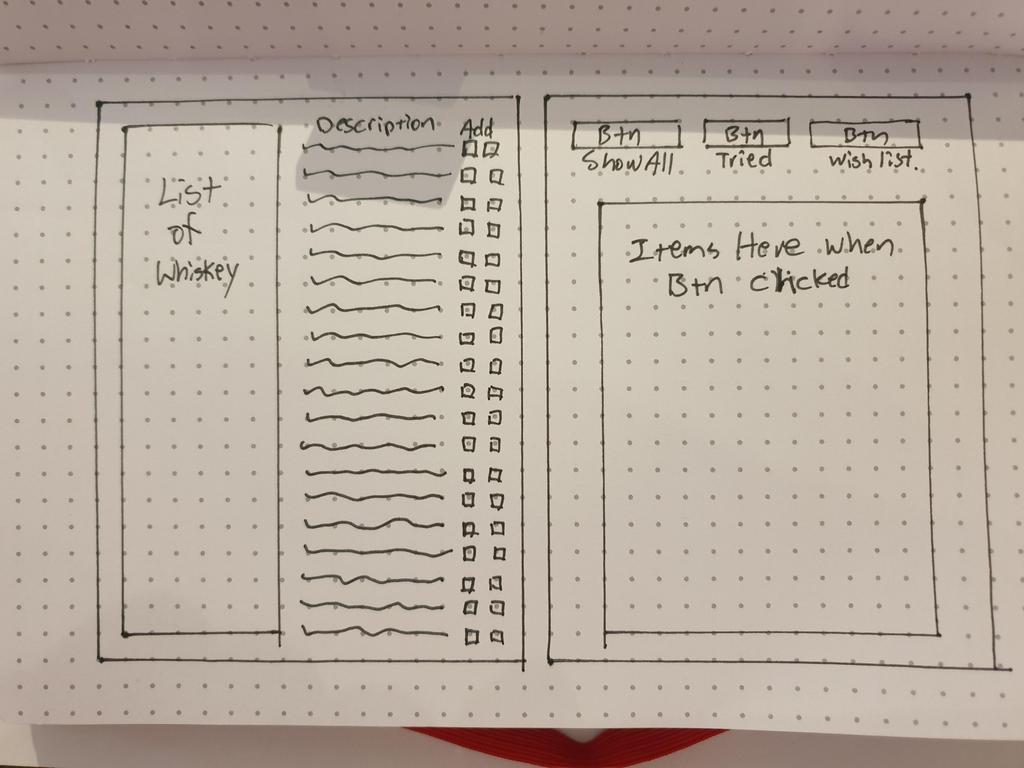 List
of
Whiskey
Description
Add
Btn
Btn
Btn
Show All
Tried
Wish list.
Items Here when
Btn clicked